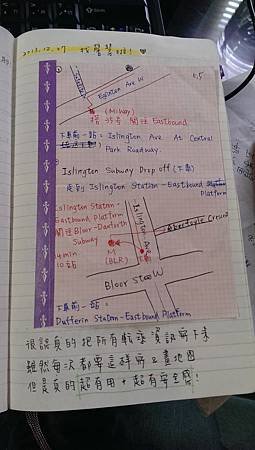 2013.12.07 找醫生館!
Eglinton Ave W
(Miway)
搭35号 開往 Eastbound
下車前一站: Islington Ave At Central
Park Roadway.
Islington Subway Drop off (下車)
走到 Islington Station - Eastbound
Platform
Islington Station -
Eastbound Platform
開往 Bloor-Danforth
Subway
4 min
10站
M
(BLR)
Islington Ave
Aberfoyle Crescent
Bloor St W
下車前一站:
Dufferin Station - Eastbound Platform
很認真的把所有轉乘資訊寫下來
雖然每次都要這樣寫且畫地圖
但是真的超有用+超有安全感!